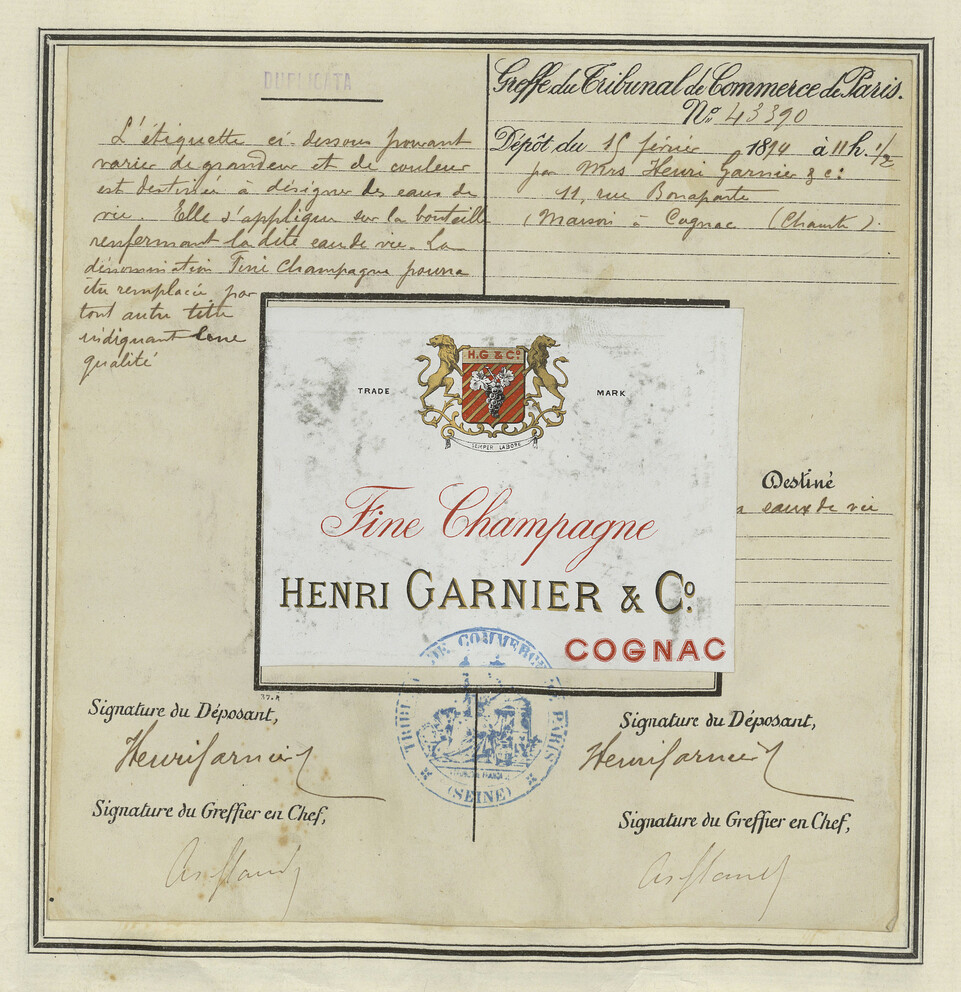 DUPLICATA
L'étiquette ci-dessous pouvant
varier de grandeur et de couleur
est destinée à désigner des eaux de
vie. Elle s'applique sur la bouteille
renfermant la dite eau de vie. La
dénomination Fine Champagne pourra
être remplacée par
tout autre titre
indiquant une
qualité
Greffe du Tribunal de Commerce de Paris.
No. 43390
Dépôt du 15 février 1894 à 11 h. 1/2
par Mrs Henri Garnier & Co:
11, rue Bonaparte
(Maison à Cognac (Charte).
H.G & Co
TRADE MARK
SEMPER LABORE
Fine Champagne
HENRI GARNIER & Co.
COGNAC
Destiné
à eaux de vie
DE COMMERCE
PARIS
(SEINE)
Signature du Déposant,
Henri Garnier
Signature du Greffier en Chef,
Signature du Déposant,
Henri Garnier
Signature du Greffier en Chef,